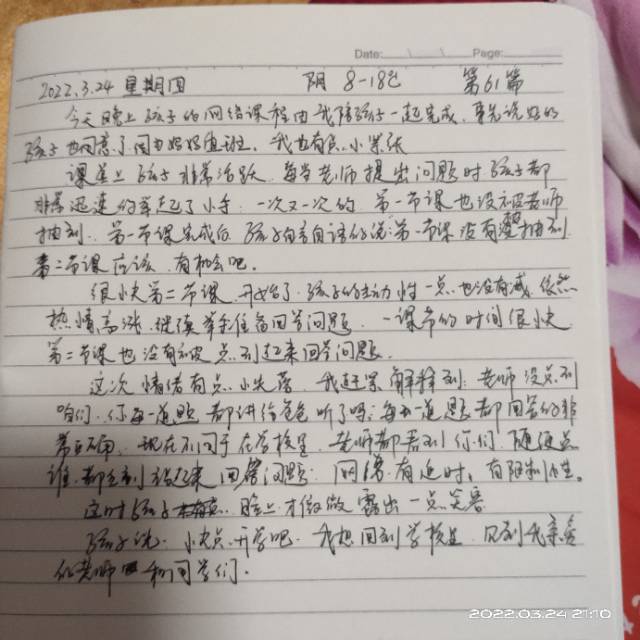 Date: Page:
2022.3.24 星期四 阴 8-18℃ 第61篇
今天晚上孩子的网络课程由我陪孩子一起完成,事先说好的
孩子也同意了因为妈妈值班。我也有点小紧张
课堂上孩子非常活跃,每当老师提出问题时孩子都
非常迅速的举起了小手,一次又一次的,第一节课也没被老师
抽到,第一节课完成后,孩子自言自语的说:第一节课没有抽到
第二节课应该有机会吧。
很快第二节课开始了,孩子的主动性一点也没有减,依然
热情高涨,继续举手准备回答问题,一课节的时间很快
第二节课也没有被点到起来回答问题。
这次情绪有点小失落,我赶紧解释到:老师没点到
咱们,你每一道题都讲给爸爸听了吗,每一道题都回答的非
常正确,现在不同于在学校里,老师都看到你们,随便点
谁都会站起来回答问题,网络有延时,有限制性。
这时孩子脸上才微微露出一点笑容
孩子说:小快点开学吧,我想回到学校里,见到我亲爱
的老师和同学们.
2022.03.24 21:10